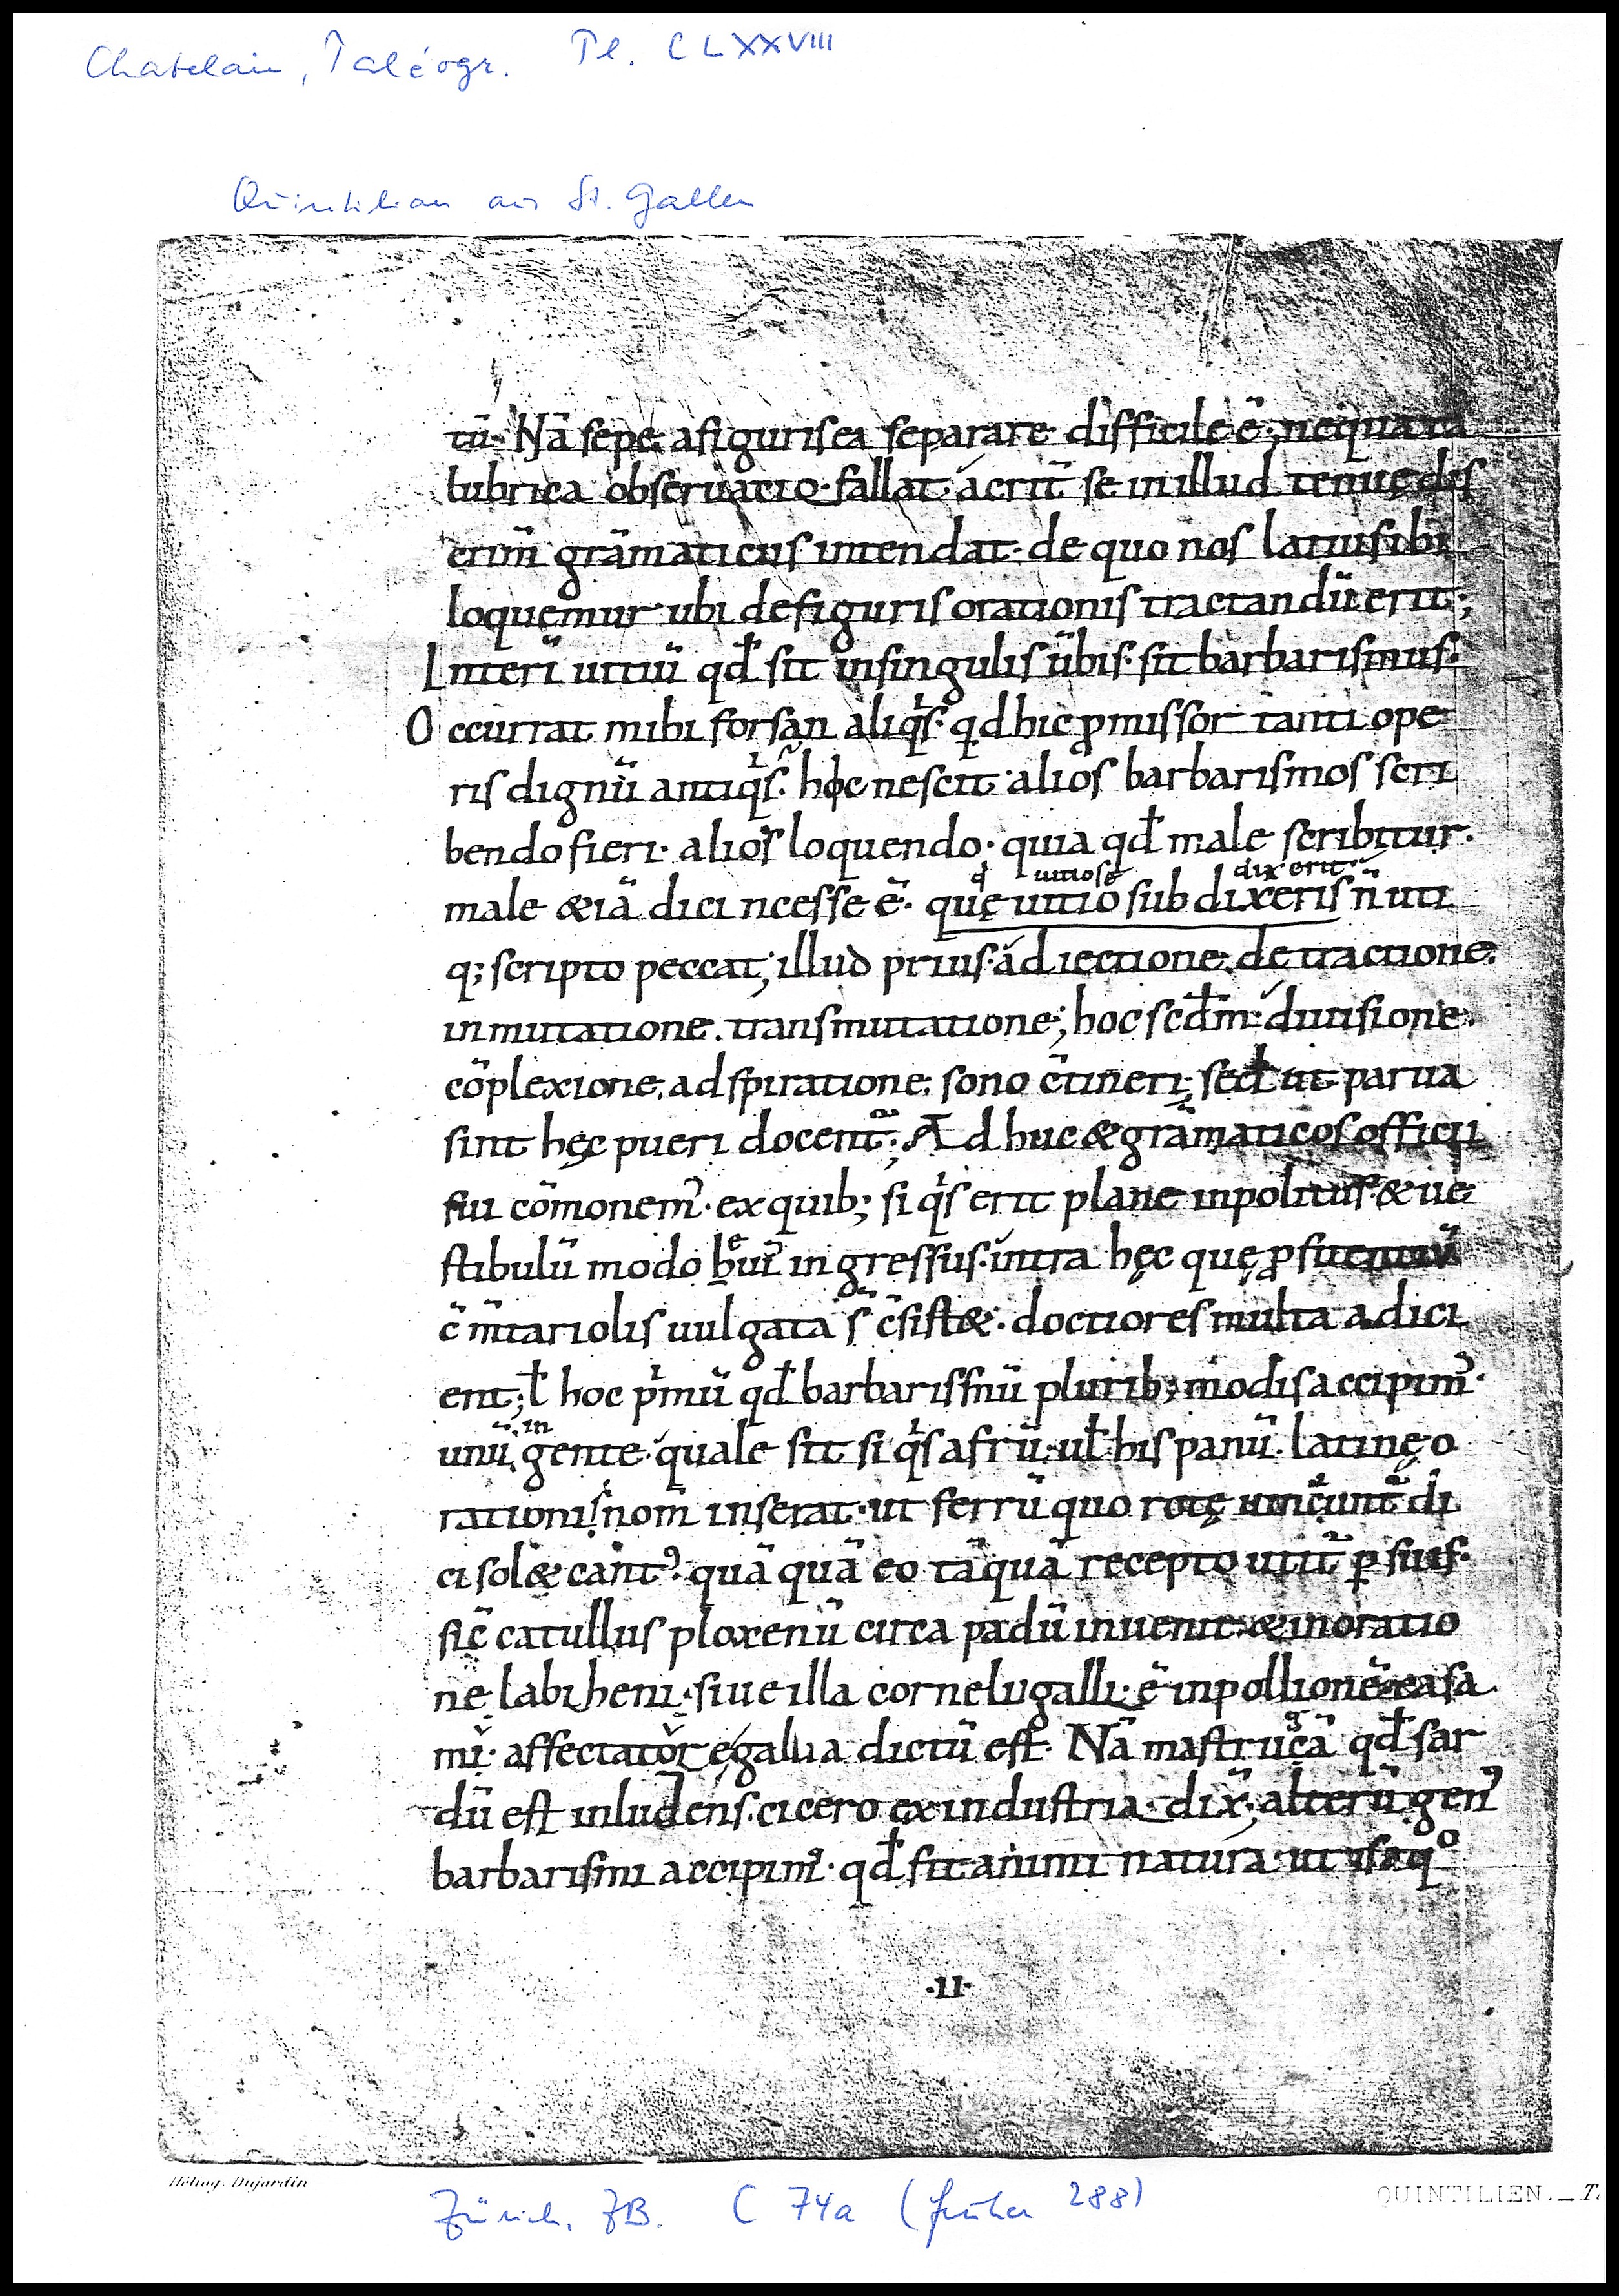 Chatelain, Paléogr. Pl. CLXXVIII
Quintilian aus St. Gallen
tū· Nā sepe afiguris ea separare difficile ē; nequa tā
lubrica obseruatio· fallat· acrit̄ se in illud tenuę dis
crim̄ grāmaticus intendat· de quo nos latius ibi
loquęmur ubi defiguris orationis tractandū erit;
Interī uitiū qđ sit insingulis ūbis· sit barbarismus·
Occurrat mihi forsan aliqͥs· qd hic ꝓmissor tanti ope
ris dignū antiqͥs· hoc nescit· alios barbarismos scri
bendo fieri· alios loquendo· quia qđ male scribitur·
male &iā dici ncesse ē· quę uitio sub dixeris n̄ uti
uitiose dixerit
q; scripto peccat; illud prius· adiectione· dętractione·
inmutatione· transmutatione; hoc scđm· diuisione·
cōplexione· adspiratione· sono c̄tineri; sed ut parua
sint hęc pueri docent̄; Adhuc &grāmaticos officii
sui cōmonem᾿· exquib; si qͥs erit plane inpolitus· &ue
stibulū modo huī ingressus· intra hęc quę ꝓfitentiū
c̄m̄tariolis uulgata s̄ c̄sist&· doctiores multa adici
ent; ł hoc pͥmū qđ barbarismū plurib; modis accipim᾿·
unū in gente· quale sit si qͥs afrū· uł hispanū· latinę o
rationis nom̄ inserat· ut ferrū quo rotę uinciunt̄ di
ci sol& cant᾿· quā quā eo tāquā recepto utit̄ persius·
sic̄ catullus ploxenū circa padū inuenit· &inoratio
ne labiheni· siue illa cornelii galli· ē inpollionē casa
mī· affectator ęgallia dictū est· Nā mastrucā qđ sar
dū est inludens· cicero ex industria· dix̄· alterū gen᾿
barbarismi accipim᾿· qđ fit animi natura· ut is aqͦ
·II·
Héliog. Dujardin
QUINTILIEN. _ T.
Zürich, ZB. C 74a (früher 288)